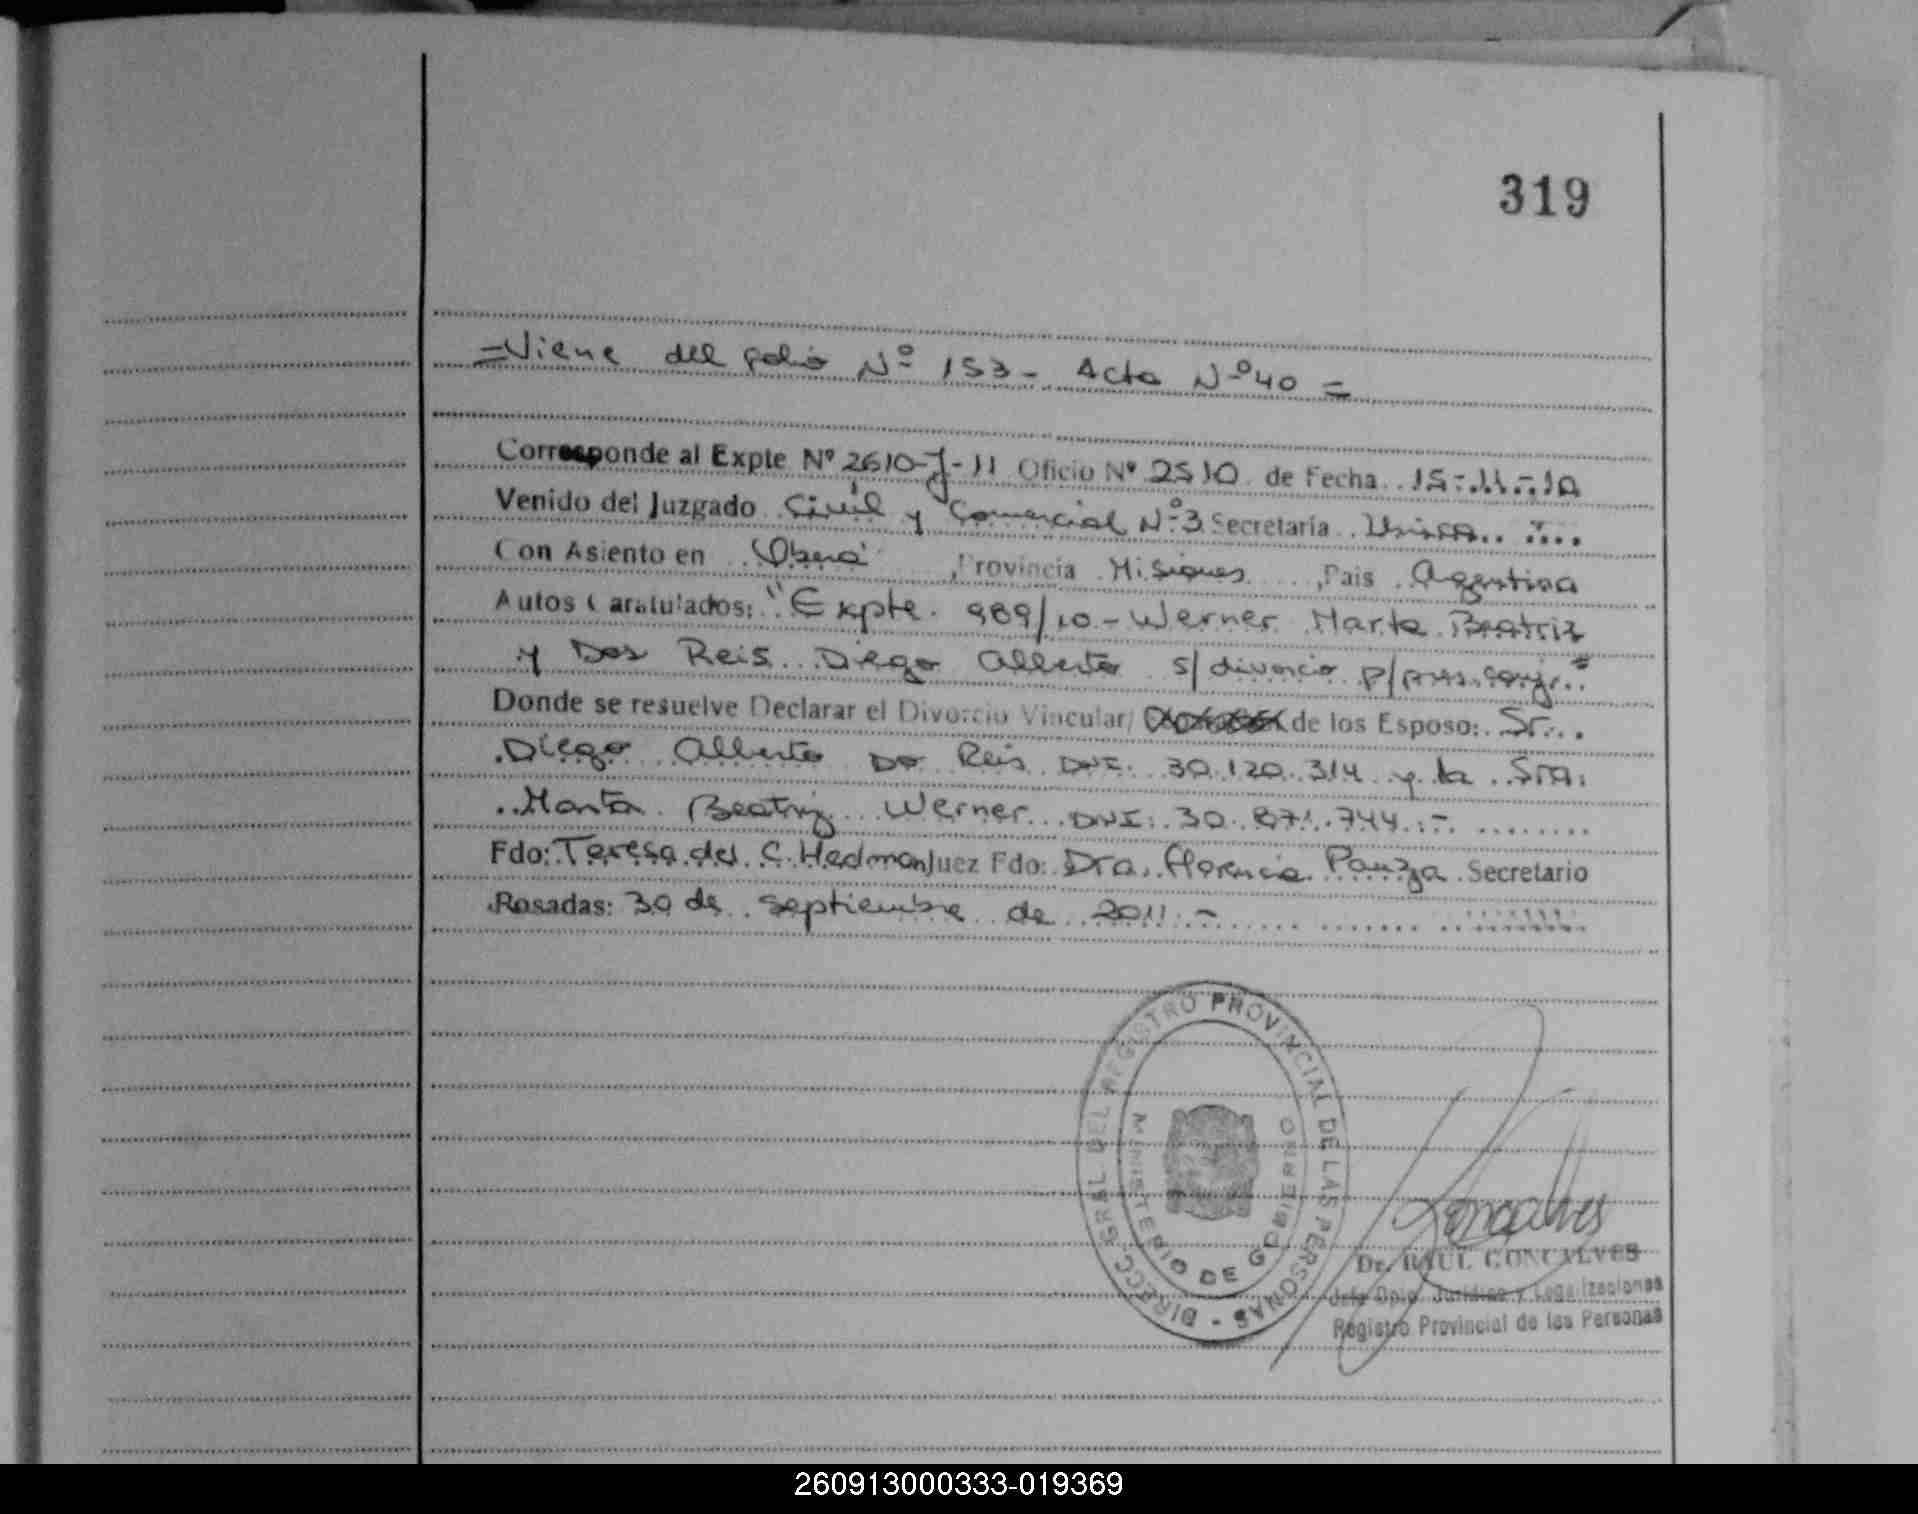 319
=Viene del folio Nº 153- Acta Nº40 =
Corresponde al Expte Nº 2610-J-11 Oficio Nº 2510 de Fecha 15-11-10
Venido del Juzgado Civil y Comercial Nº3 Secretaría Unica
Con Asiento en Oberá ,Provincia Misiones ,Pais Argentina
Autos Caratulados: "Expte. 989/10-Werner Marta Beatriz
y Dos Reis Diego Alberto s/divorcio p/pres.conj."
Donde se resuelve Declarar el Divorcio Vincular/ de los Esposo: Sr.
Diego Alberto Do Reis DNI. 30.120.314 y la Sra.
Marta Beatriz Werner DNI. 30.871.744.-
Fdo: Teresa del C. Hedman Juez Fdo: Dra. Florencia Panza Secretario
Rosadas: 30 de septiembre de 2011.-
DIRECC. GRAL DEL REGISTRO PROVINCIAL DE LAS PERSONAS -
MINISTERIO DE GOBIERNO
Goncalves
Dr. RAUL GONCALVES
Jefe Dpto. Jurídico y Legalizaciones
Registro Provincial de las Personas
260913000333-019369